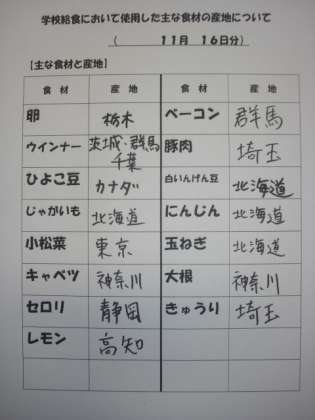 学校給食において使用した主な食材の産地について
( 11月 16日分)
【主な食材と産地】
食材 産地 食材 産地
卵 栃木 ベーコン 群馬
ウインナー 茨城・群馬 千葉 豚肉 埼玉
ひよこ豆 カナダ 白いんげん豆 北海道
じゃがいも 北海道 にんじん 北海道
小松菜 東京 玉ねぎ 北海道
キャベツ 神奈川 大根 神奈川
セロリ 静岡 きゅうり 埼玉
レモン 高知